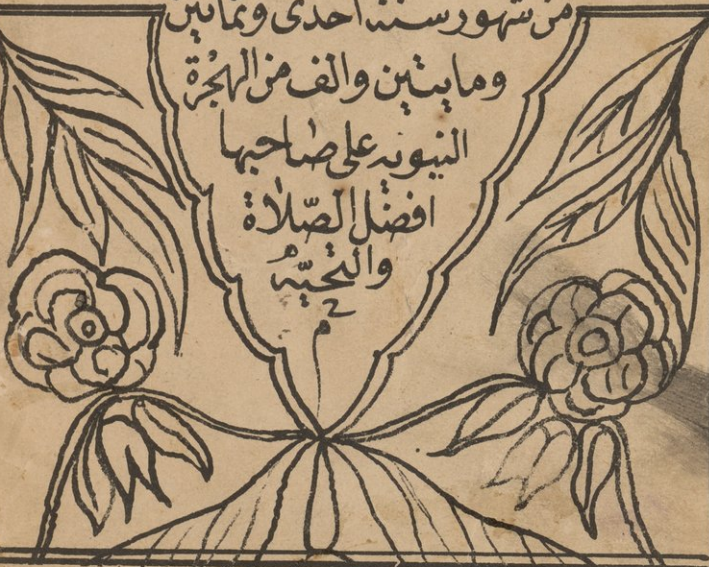 من شهور سنة احدى وثمانين
ومايتين والف من الهجرة
النبويه على صاحبها
افضل الصّلاة
والتحيّه
م